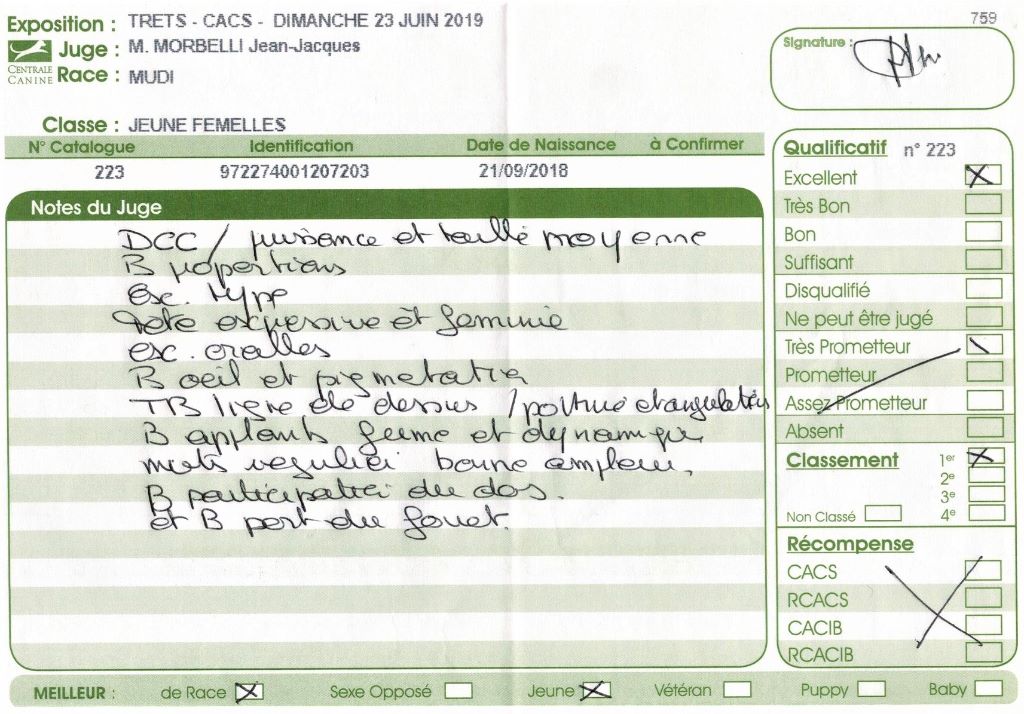 759
Exposition : TRETS - CACS - DIMANCHE 23 JUIN 2019
Juge : M. MORBELLI Jean-Jacques
CENTRALE CANINE
Race : MUDI
Signature :
Classe : JEUNE FEMELLES
N° Catalogue Identification Date de Naissance à Confirmer
223 972274001207203 21/09/2018
Notes du Juge
DCC / puissance et taille moyenne
B proportions
exc. type
tete expressive et feminie
exc. oreilles
B oeil et pigmetatin
TB ligne de dessus / poitrine et angulations
B applombs ferme et dynamique
mvts regulier bonne ampleur.
B participation du dos.
et B port du fouet.
Qualificatif n° 223
Excellent
Très Bon
Bon
Suffisant
Disqualifié
Ne peut être jugé
Très Prometteur
Prometteur
Assez Prometteur
Absent
Classement 1er
2e
3e
Non Classé 4e
Récompense
CACS
RCACS
CACIB
RCACIB
MEILLEUR : de Race Sexe Opposé Jeune Vétéran Puppy Baby